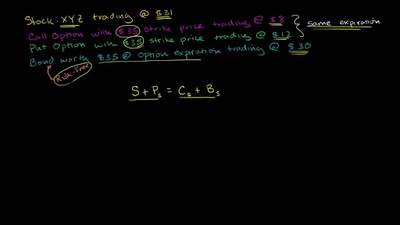 Stock: XYZ trading @ $31
Call Option with $35 strike price trading @ $8
same expiration
Put Option with $35 strike price trading @ $12
Bond worth $35 @ option expiration trading @ $30
Risk-Free
S + Ps = Cs + Bs